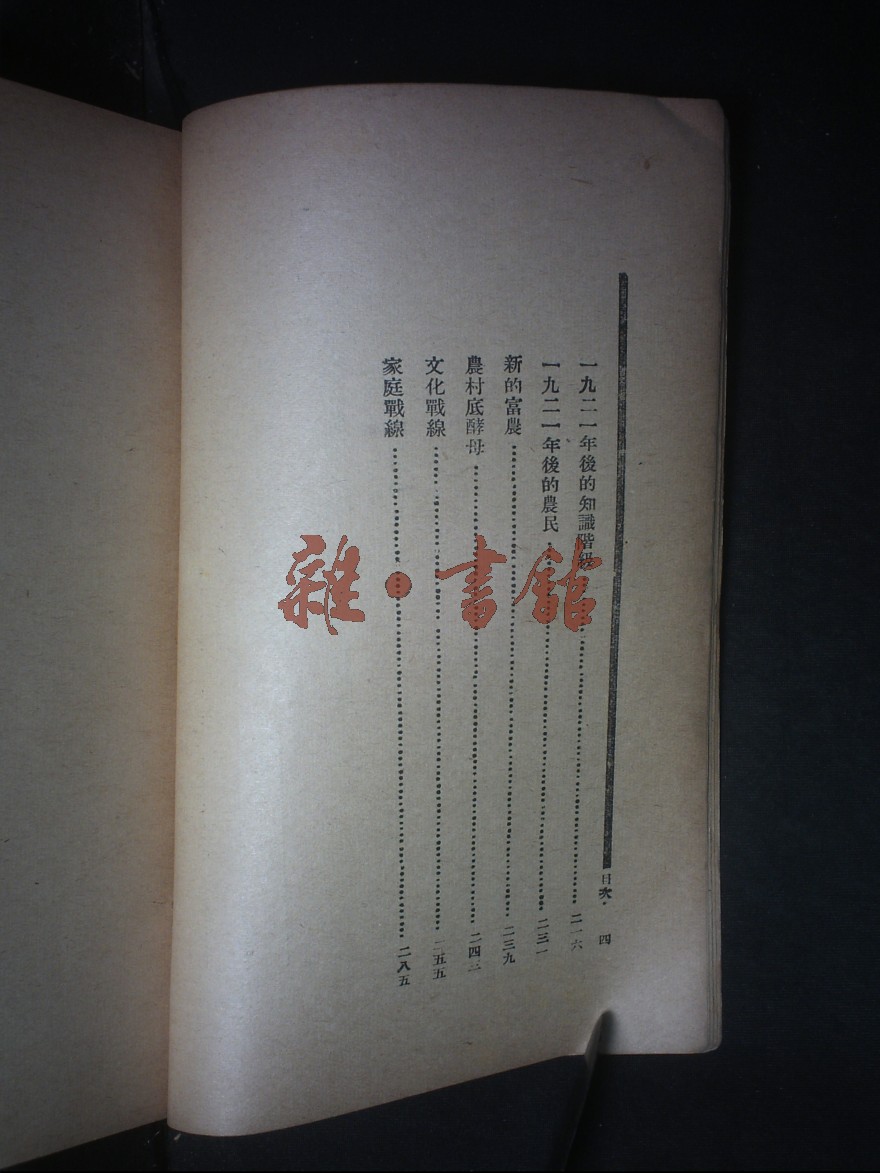 一九二一年後的知識階級……二一六
一九二一年後的農民……二三一
新的富農……二三九
農村底酵母……二四三
文化戰線……二五五
家庭戰線……二八五
目次・四
雜・書館